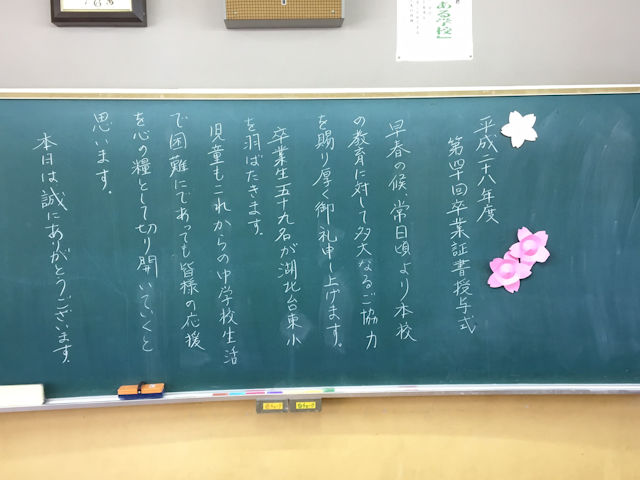 ある学校」
平成二十八年度
第四十回卒業証書授与式
早春の候、常日頃より本校
の教育に対して多大なるご協力
を賜り厚く御礼申し上げます。
卒業生五十九名が湖北台東小
を羽ばたきます。
児童もこれからの中学校生活
で困難にであっても皆様の応援
を心の糧として切り開いていくと
思います。
本日は誠にありがとうございます。